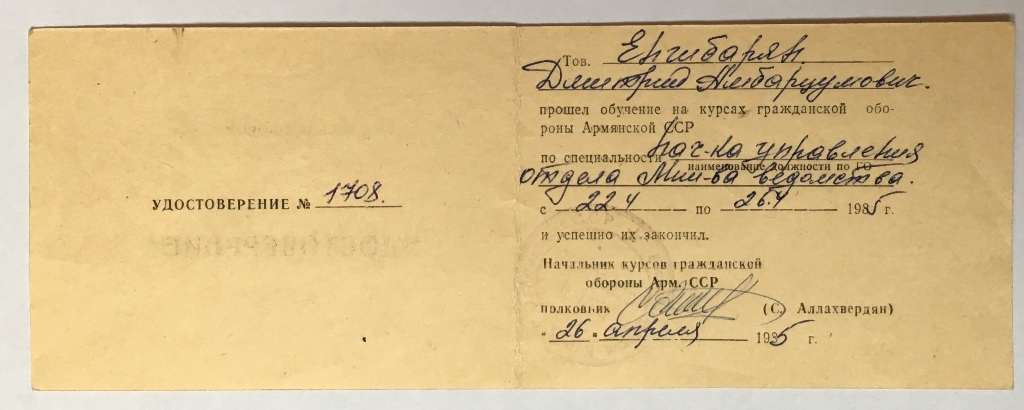 УДОСТОВЕРЕНИЕ № 1708.
Тов. Енгибарян
Дмитрий Амбарцумович.
прошел обучение на курсах гражданской обо-
роны Армянской ССР
по специальности нач-ка управления
наименование должности по ГО
отдела Мин-ва ведомства.
с 22.4 по 26.4 1985 г.
и успешно их закончил.
Начальник курсов гражданской
обороны Арм. ССР
полковник (С. Аллахвердян)
"26" апреля 1985 г.